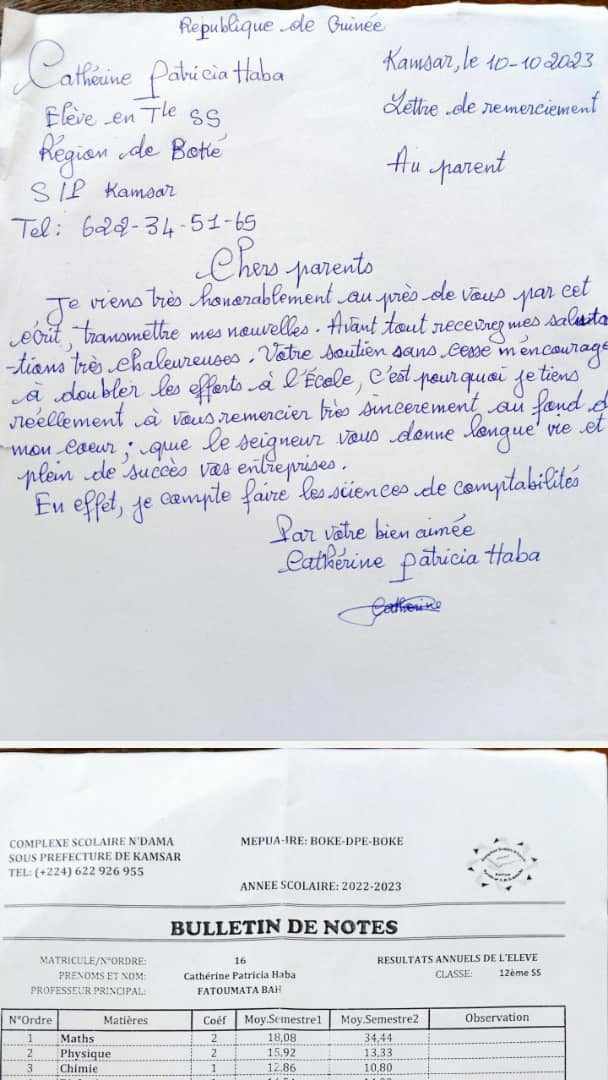 République de Guinée
Cathérine Patricia Haba
Elève en Tle SS
Région de Boké
S/P Kamsar
Tel: 622-34-51-65
Kamsar, le 10-10 2023
Lettre de remerciement
Au parent
Chers parents
Je viens très honorablement au près de vous par cet
écrit, transmettre mes nouvelles. Avant tout recevrez mes saluta
-tions très chaleureuses. Votre soutien sans cesse m'encourage
à doubler les efforts à l'École, C'est pourquoi je tiens
réellement à vous remercier très sincerement au fond d
mon coeur; que le seigneur vous donne longue vie et
plein de succès vos entreprises.
En effet, je compte faire les sciences de comptabilités
Par votre bien aimée
Cathérine Patricia Haba
Catherine
COMPLEXE SCOLAIRE N'DAMA
SOUS PREFECTURE DE KAMSAR
TEL: (+224) 622 926 955
MEPUA-IRE: BOKE-DPE-BOKE
ANNEE SCOLAIRE: 2022-2023
BULLETIN DE NOTES
MATRICULE/N°ORDRE: 16
PRENOMS ET NOM: Cathérine Patricia Haba
PROFESSEUR PRINCIPAL: FATOUMATA BAH
RESULTATS ANNUELS DE L'ELEVE
CLASSE: 12ème SS
N°Ordre Matières Coéf Moy.Semestre1 Moy.Semestre2 Observation
1 Maths 2 18,08 34,44
2 Physique 2 15,92 13,33
3 Chimie 1 12,86 10,80